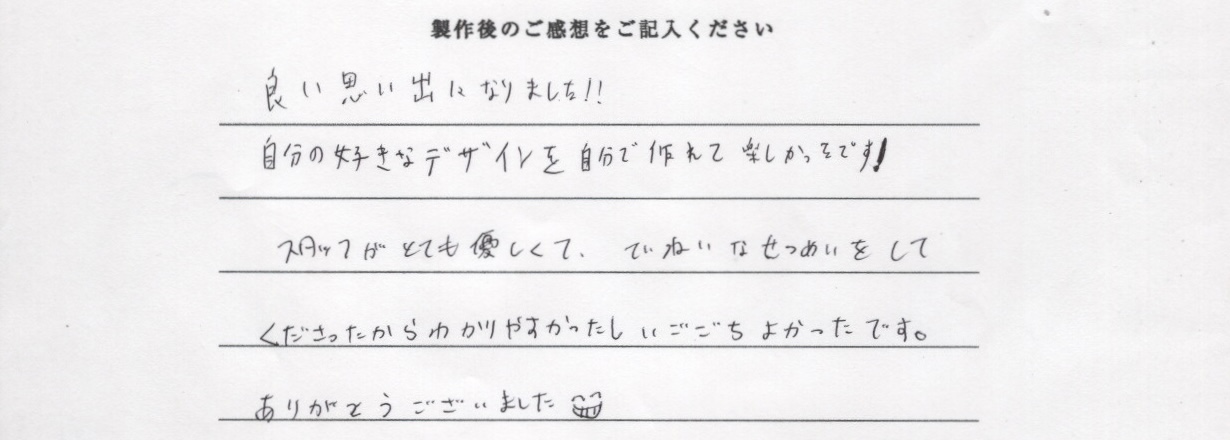 製作後のご感想をご記入ください
良い思い出になりました!!
自分の好きなデザインを自分で作れて楽しかったです!
スタッフがとても優しくて、ていねいなせつめいをして
くださったからわかりやすかったしいごごちよかったです。
ありがとうございました